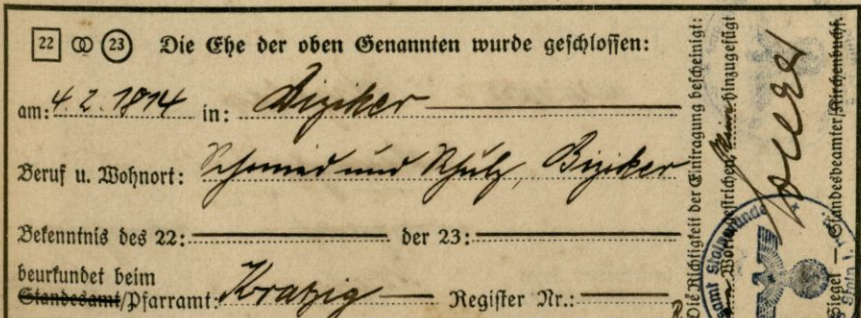 22 ⚭ 23 Die Ehe der oben Genannten wurde geschlossen:
am: 4.2.1814 in: Biziker
Beruf u. Wohnort: Schmied und Schulz, Biziker
Bekenntnis des 22: der 23:
beurkundet beim
Standesamt/Pfarramt: Kratzig Register Nr.:
Die Richtigkeit der Eintragung bescheinigt:
Wort gestrichen, hinzugefügt
Siegel — Standesbeamter/Kirchenbuchf.